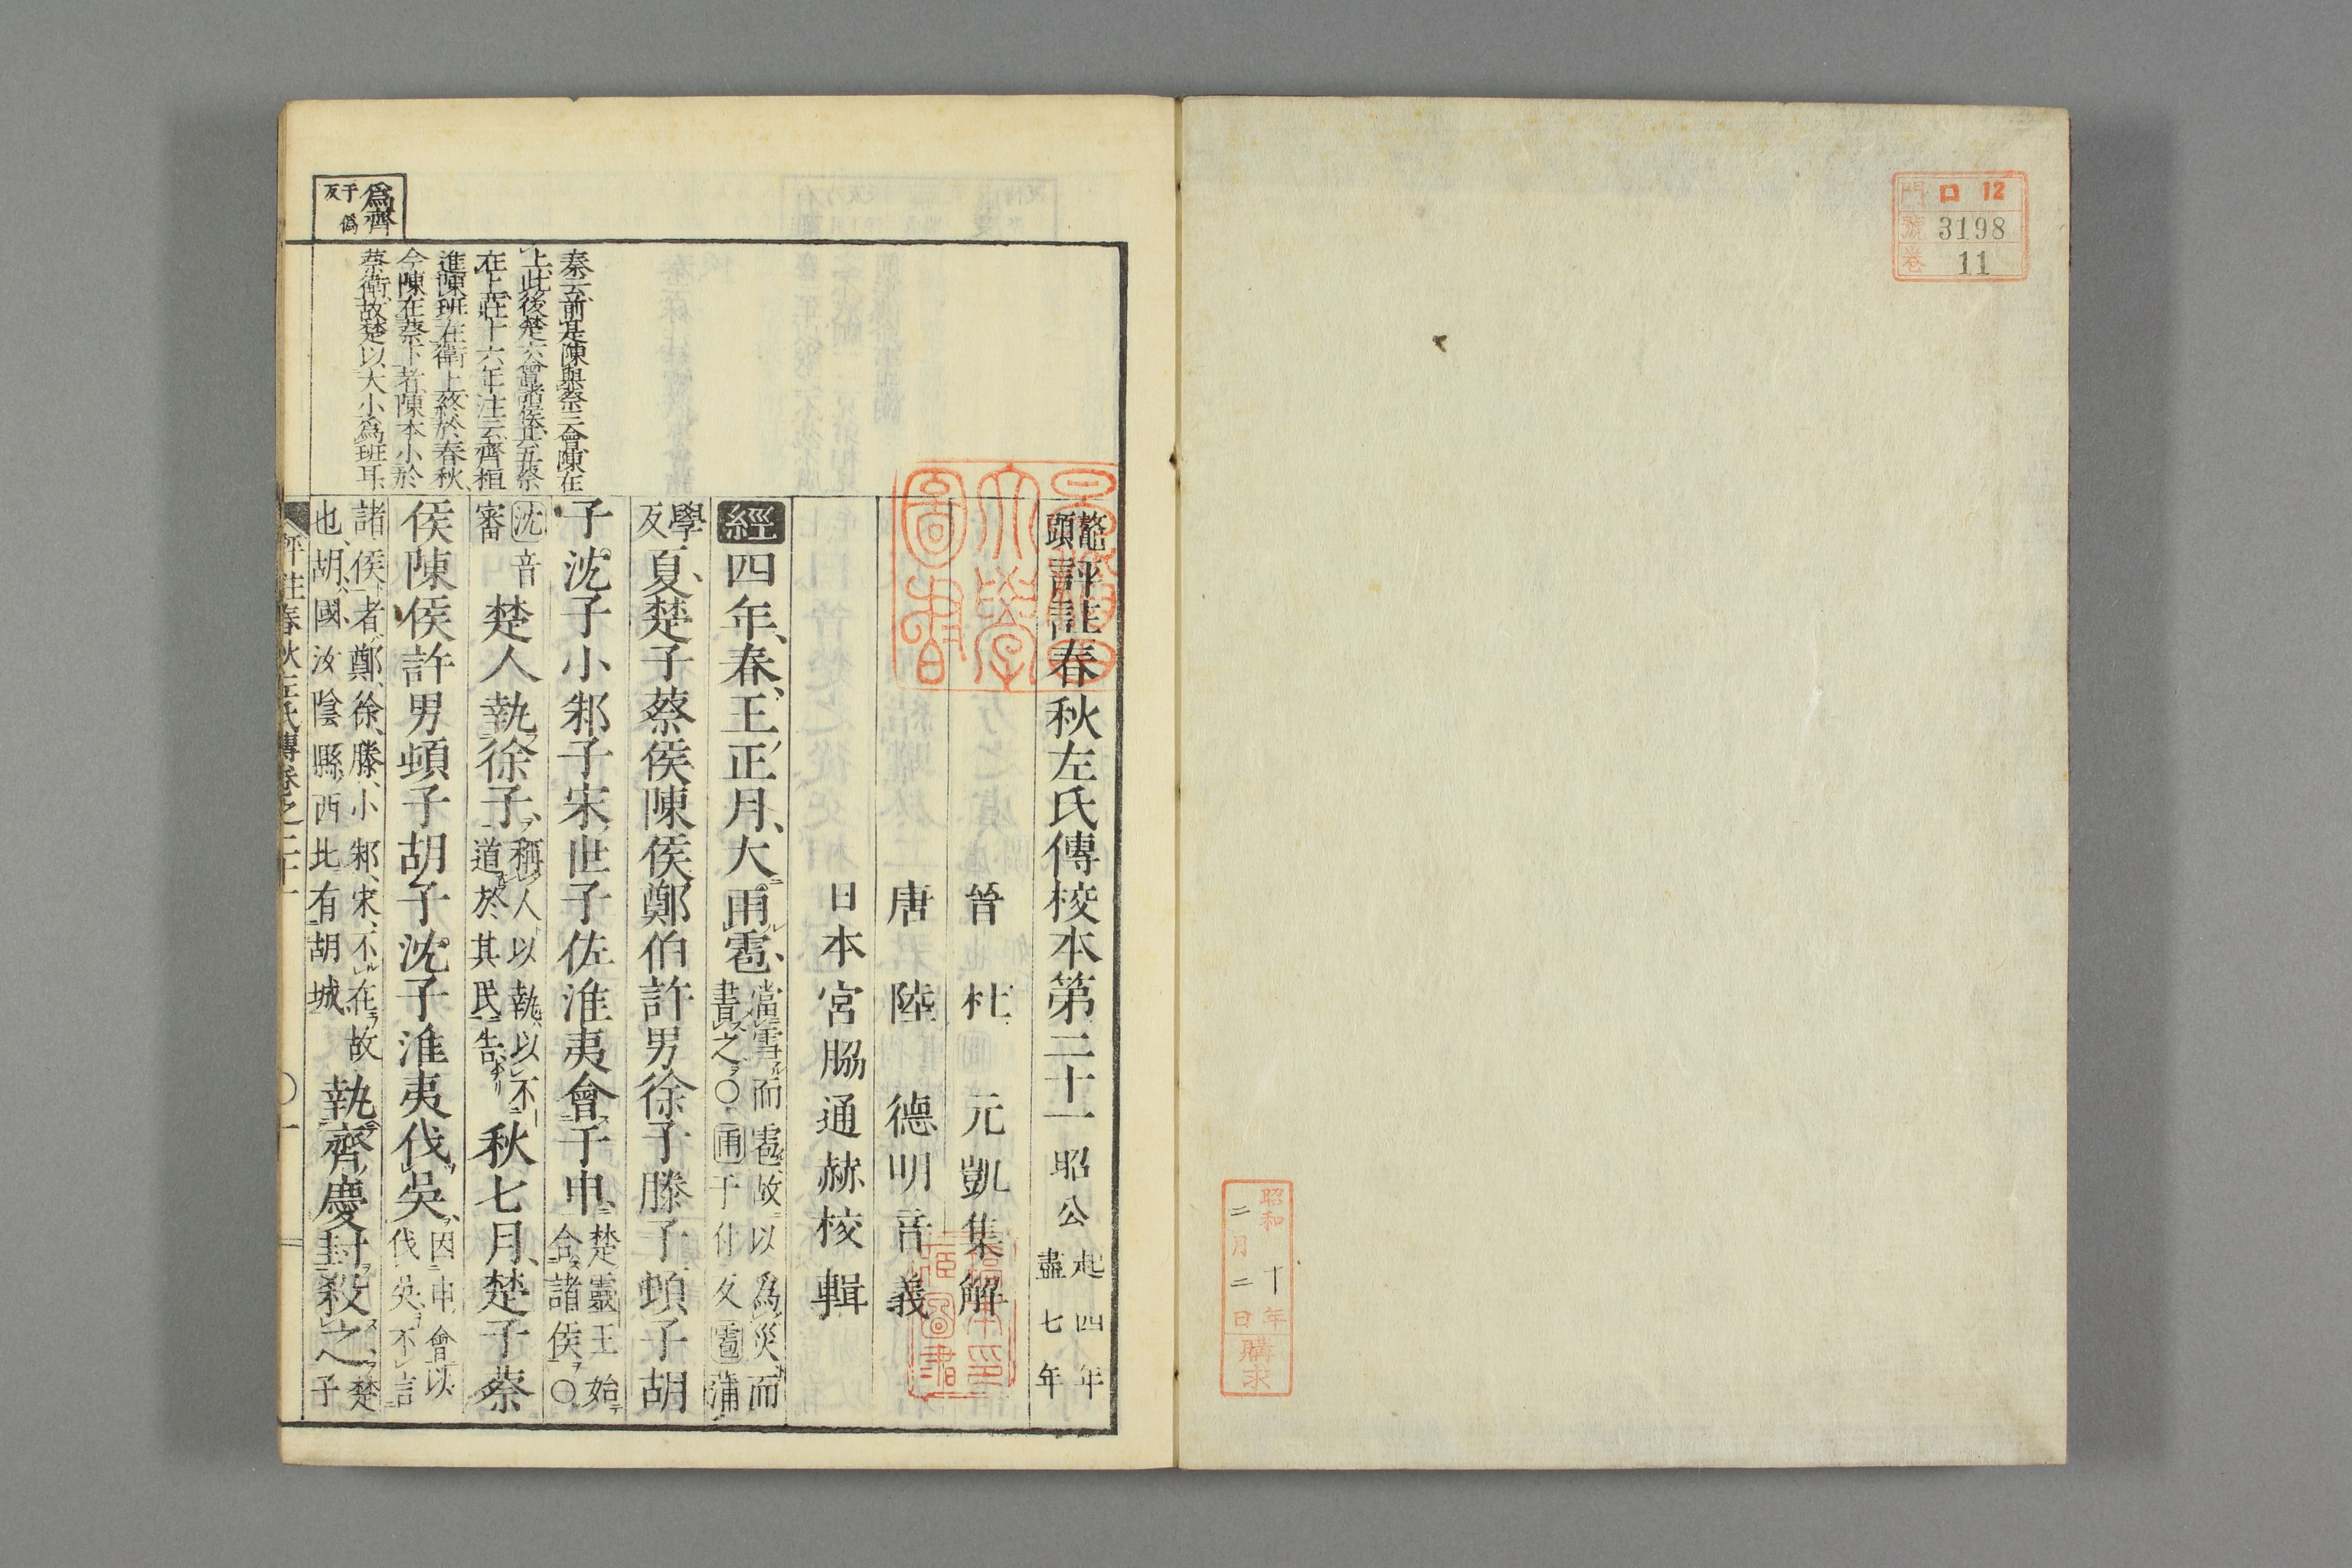 門 ロ 12
號 3198
卷 11
昭和十年
二月二日
購求
鼇頭評註春秋左氏傳校本第二十一 昭公 起四年盡七年
晉 杜 元凱集解
唐 陸 德明音義
日本 宮脇通赫校輯
經四年、春、王正月、大雨雹、當雪而雹、故以爲災而書之○雨于付反雹蒲
學反夏、楚子蔡侯陳侯鄭伯許男徐子滕子頓子胡
子沈子小邾子宋世子佐淮夷會于申、楚靈王始合諸侯○
沈音審楚人執徐子、稱人以執、以不道於其民告秋七月、楚子蔡
侯陳侯許男頓子胡子沈子淮夷伐吳、因申會以伐吳、不言
諸侯者、鄭、徐、滕、小邾、宋、不在故也、胡、國、汝陰縣西北有胡城執齊慶封殺之、楚子
爲齊 于僞反
秦云、前是陳與蔡三會、陳在
上、此後楚六會諸侯、其五蔡
在上、莊十六年注云、齊桓
進陳班在衞上、終於春秋、
今陳在蔡下者、陳本小於
蔡衞、故楚以大小爲班耳、
評註春秋左氏傳卷之二十一 ○一